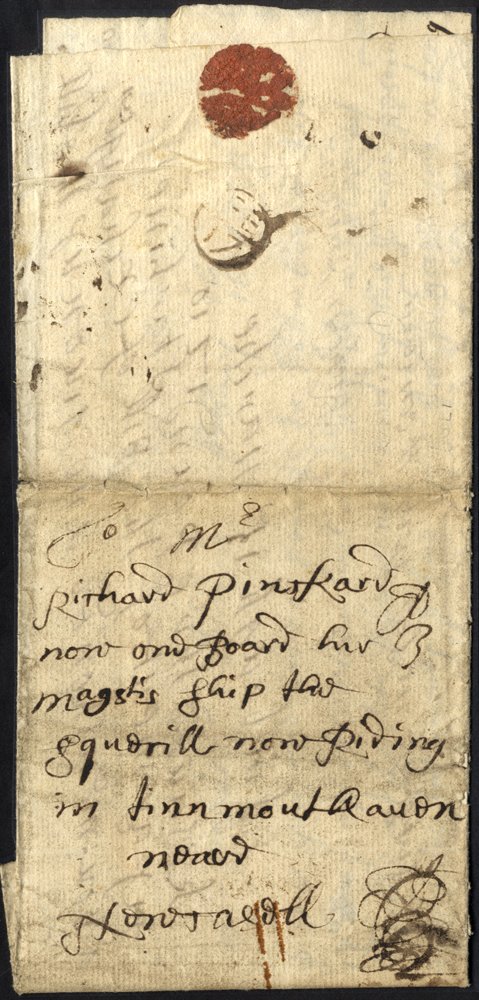 To Mr
Richard Pinckard
now one Board hur
Magstis Ship the
Squerill now Riding
in tinnmouth haven
neard
Newcasell